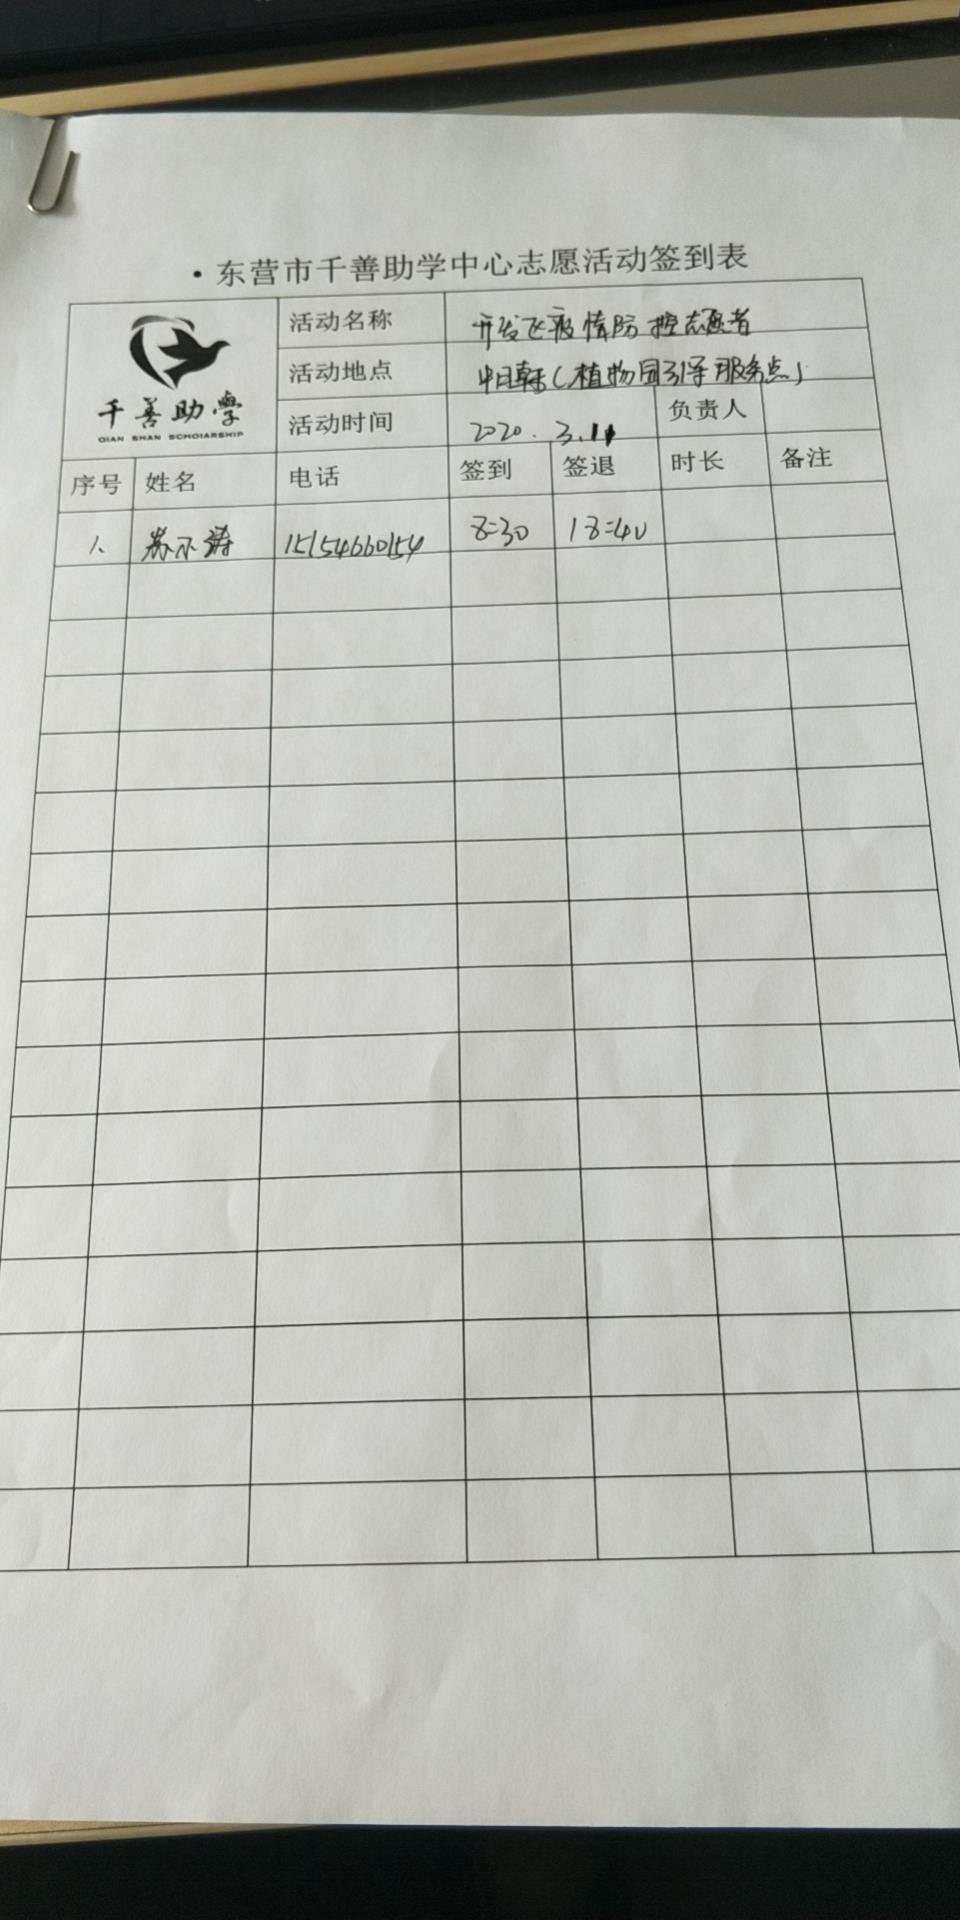 ·东营市千善助学中心志愿活动签到表
千善助學
QIAN SHAN SCHOLARSHIP
活动名称 开发区疫情防控志愿者
活动地点 (植物园引导服务点)
活动时间 2020.3.11 负责人
序号 姓名 电话 签到 签退 时长 备注
1、 苏 涛 15154660154 8:30 18:40